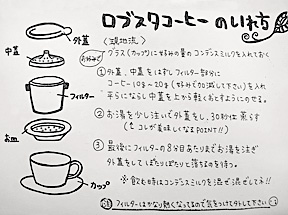 ロブスタコーヒーのいれ方
〈現地流〉
お好みで グラス(カップ)に好みの量のコンデンスミルクを入れておく
外蓋
中蓋
フィルター
お皿
カップ
① 外蓋、中蓋をはずしフィルター部分に
コーヒー10g~20g(お好みで加減して下さい)を入れ
平らにならし中蓋を上から軽くおとすようにのせる。
② お湯を少し注いで外蓋をし、30秒ほど蒸らす
(↑コレが美味しくなるPOINT!!)
③ 最後にフィルターの8分目あたりまでお湯を注ぎ
外蓋をしてぽたりぽたりと落ちるのを待つ。
※飲む時はコンデンスミルクを混ぜ混ぜして下!!
注 フィルターはかなり熱くなってるので気をつけて外して下さい